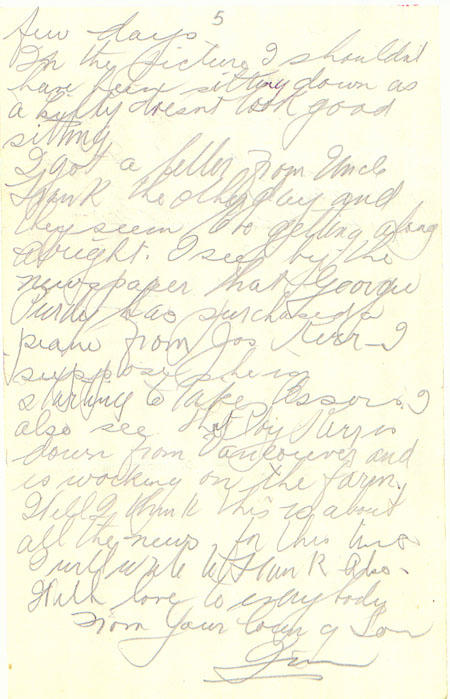 5
few days
In the picture I shouldn't
have been sitting down as
a kilty doesn't look good
sitting
I got a letter from Uncle
Frank the other day and
they seem to be getting along
alright. I see by the
newspaper that Georgie
has purchased a
piano from Jos Kerr - I
suppose she is
starting to take lessons. I
also see that Roy Kerr is
down from Vancouver and
is working on the farm.
Well I think this is about
all the news for this time
I will write to Frank also -
With love to everybody
From your loving Son
Jim